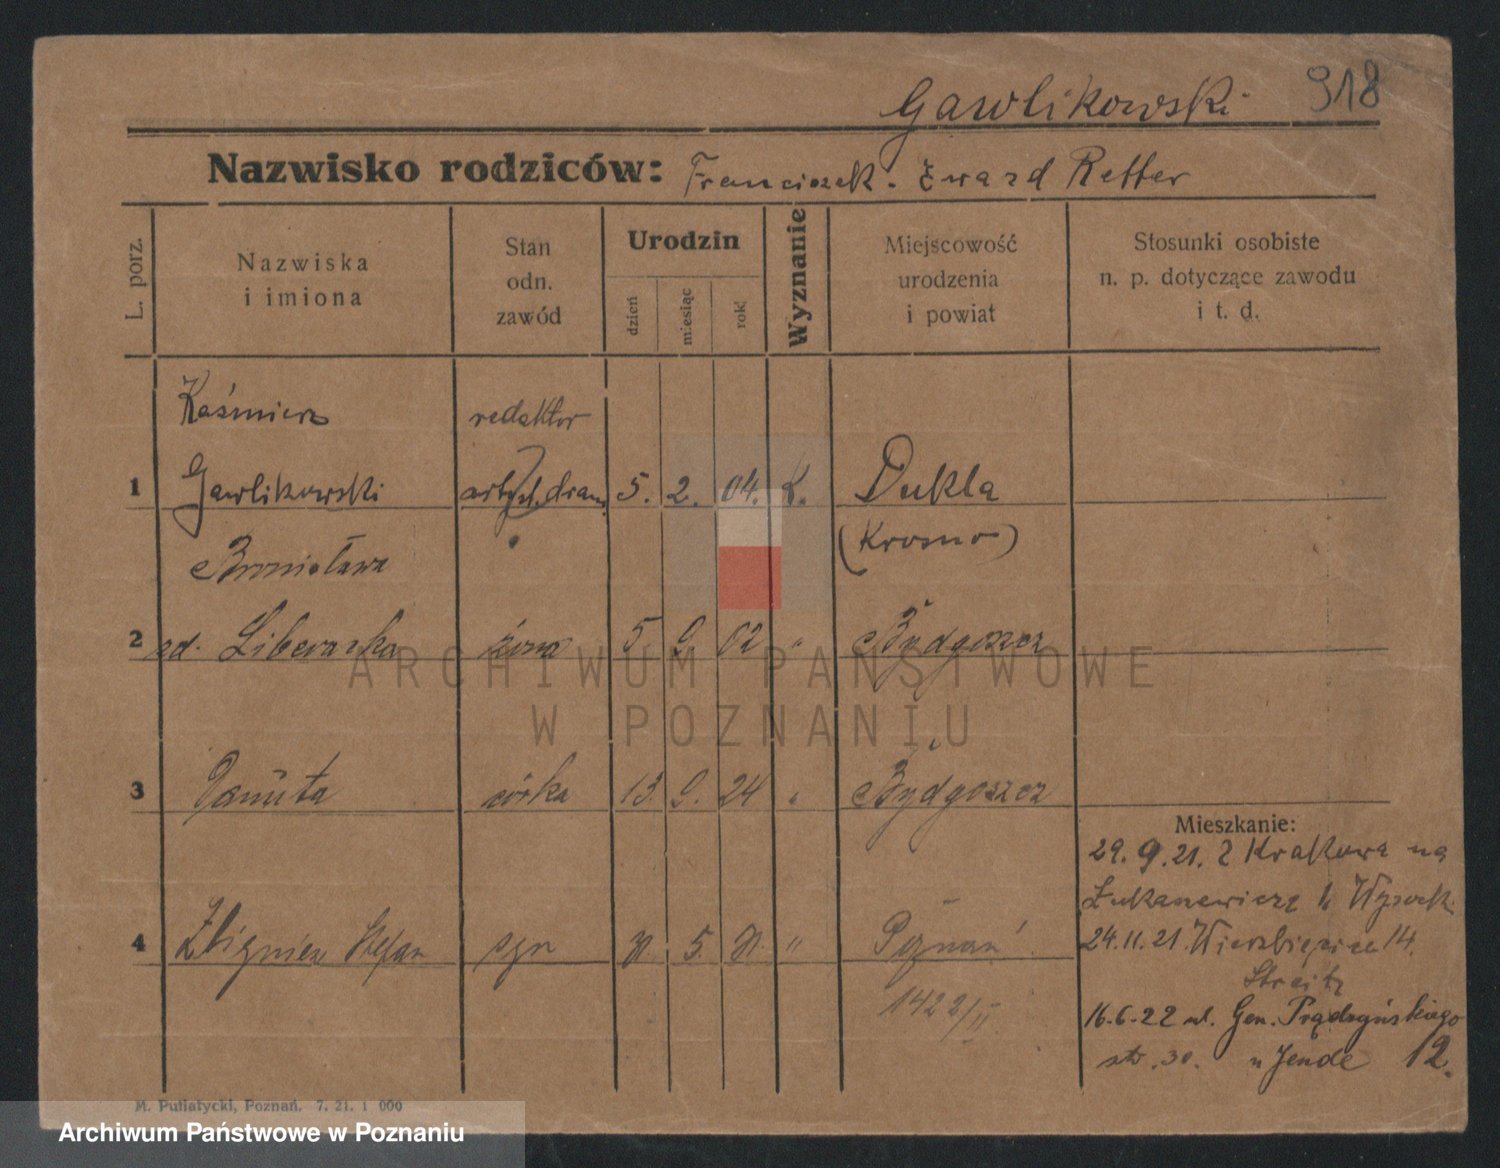 Gawlikowski 918
Nazwisko rodziców: Franciszek. Edward Retter
L. porz.
Nazwiska i imiona
Stan odn. zawód
Urodzin
dzień
miesiąc
rok
Wyznanie
Miejscowość urodzenia i powiat
Stosunki osobiste n. p. dotyczące zawodu i t. d.
Kaźmierz redaktor
1 Gawlikowski artyst. dram. 5. 2. 04. K. Dukla
(Krosno)
Bronisława
2 zd. Liberacka żona 5 9. 02 " Bydgoszcz
3 Danuta córka 13 9. 24 " Bydgoszcz
Mieszkanie:
29. 9. 21. z Krakowa na
Łukaszewicza u
4 Zbigniew Stefan syn 5. " Poznań
24.11.21. Wierzbięcice 14.
1422/II
16.6.22 ul. Gen. Prądzyńskiego
str. 30. u Jende 12.
M. Putiatycki, Poznań. 7. 21. 1 000
ARCHIWUM PAŃSTWOWE
W POZNANIU
Archiwum Państwowe w Poznaniu